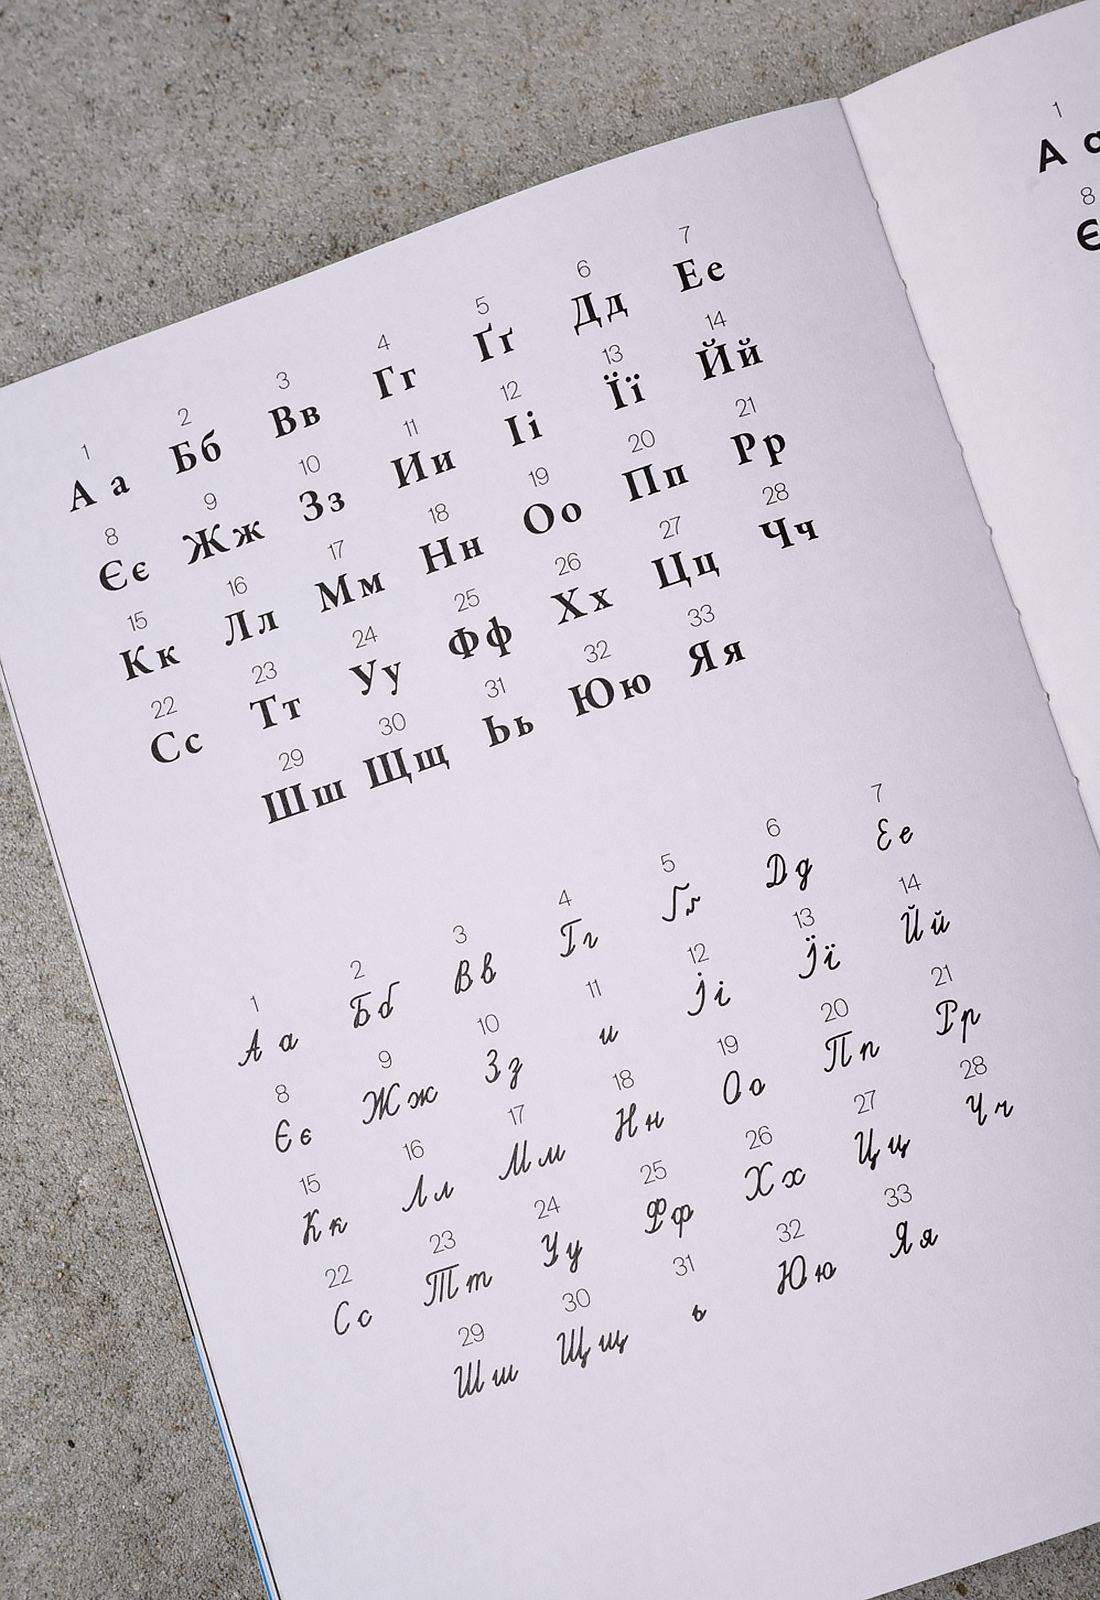 1 2 3 4 5 6 7
А а Бб Вв Гг Ґґ Дд Ее
8 9 10 11 12 13 14
Єє Жж Зз Ии Іі Її Йй
15 16 17 18 19 20 21
Кк Лл Мм Нн Оо Пп Рр
22 23 24 25 26 27 28
Сс Тт Уу Фф Хх Цц Чч
29 30 31 32 33
Шш Щщ Ьь Юю Яя
1 2 3 4 5 6 7
А а Бб Вв Гг Ґґ Дд Ее
8 9 10 11 12 13 14
Єє Жж Зз и Іі Її Йй
15 16 17 18 19 20 21
Кк Лл Мм Нн Оо Пп Рр
22 23 24 25 26 27 28
Сс Тт Уу Фф Хх Цц Чч
29 30 31 32 33
Шш Щщ ь Юю Яя
1
А а
8
Є